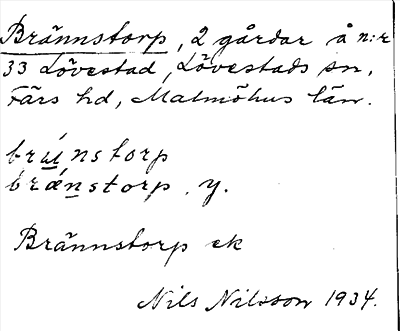 Brännstorp, 2 gårdar å n:r
33 Lövestad, Lövestads sn,
Färs hd, Malmöhus län.
brǽnstorp, y.
Brännstorp ek
Nils Nilsson 1934.